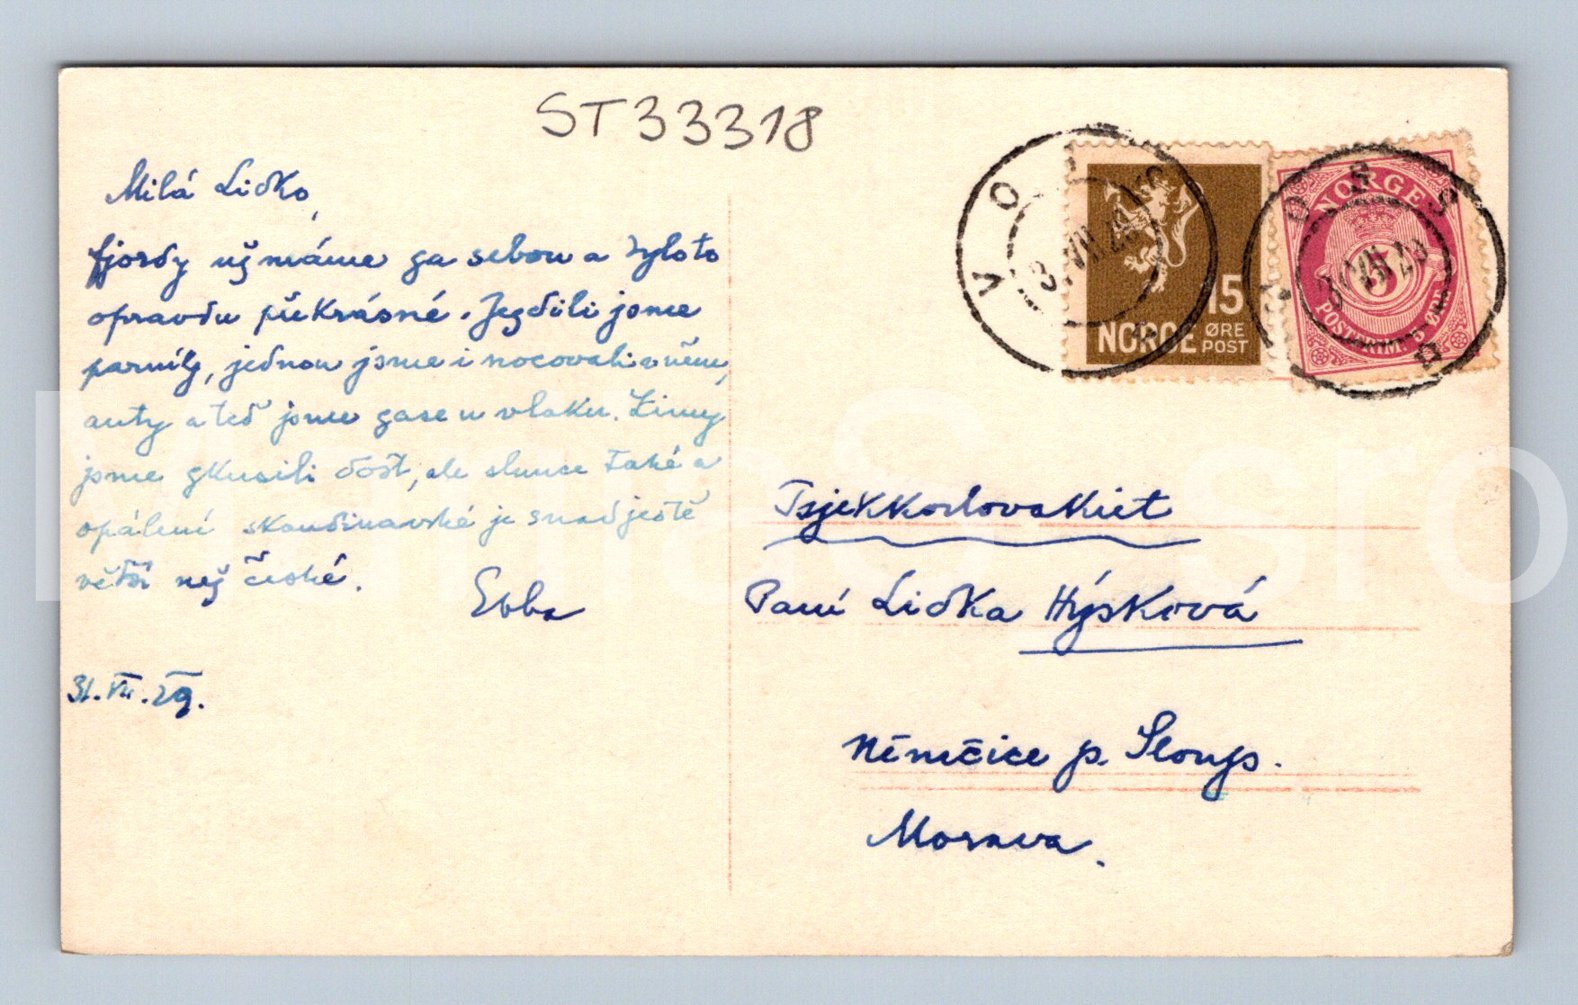 ST33318
Milá Lidko,
fjordy už máme za sebou a bylo to
opravdu překrásné. Jezdili jsme
parníky, jednou jsme i nocovali v něm,
auty a teď jsme zase u vlaku. Zimy
jsme zkusili dost, ale slunce také a
opálení skandinavské je snad ještě
větší než české.
Ebba
31.VII.29.
VOSS
NORGE 15 ØRE POST
VOSS
NORGE
POSTFRIM. 5 ØRE
Tsjekkoslovakiet
Paní Lidka Hýsková
Němčice p. Sloup.
Morava.